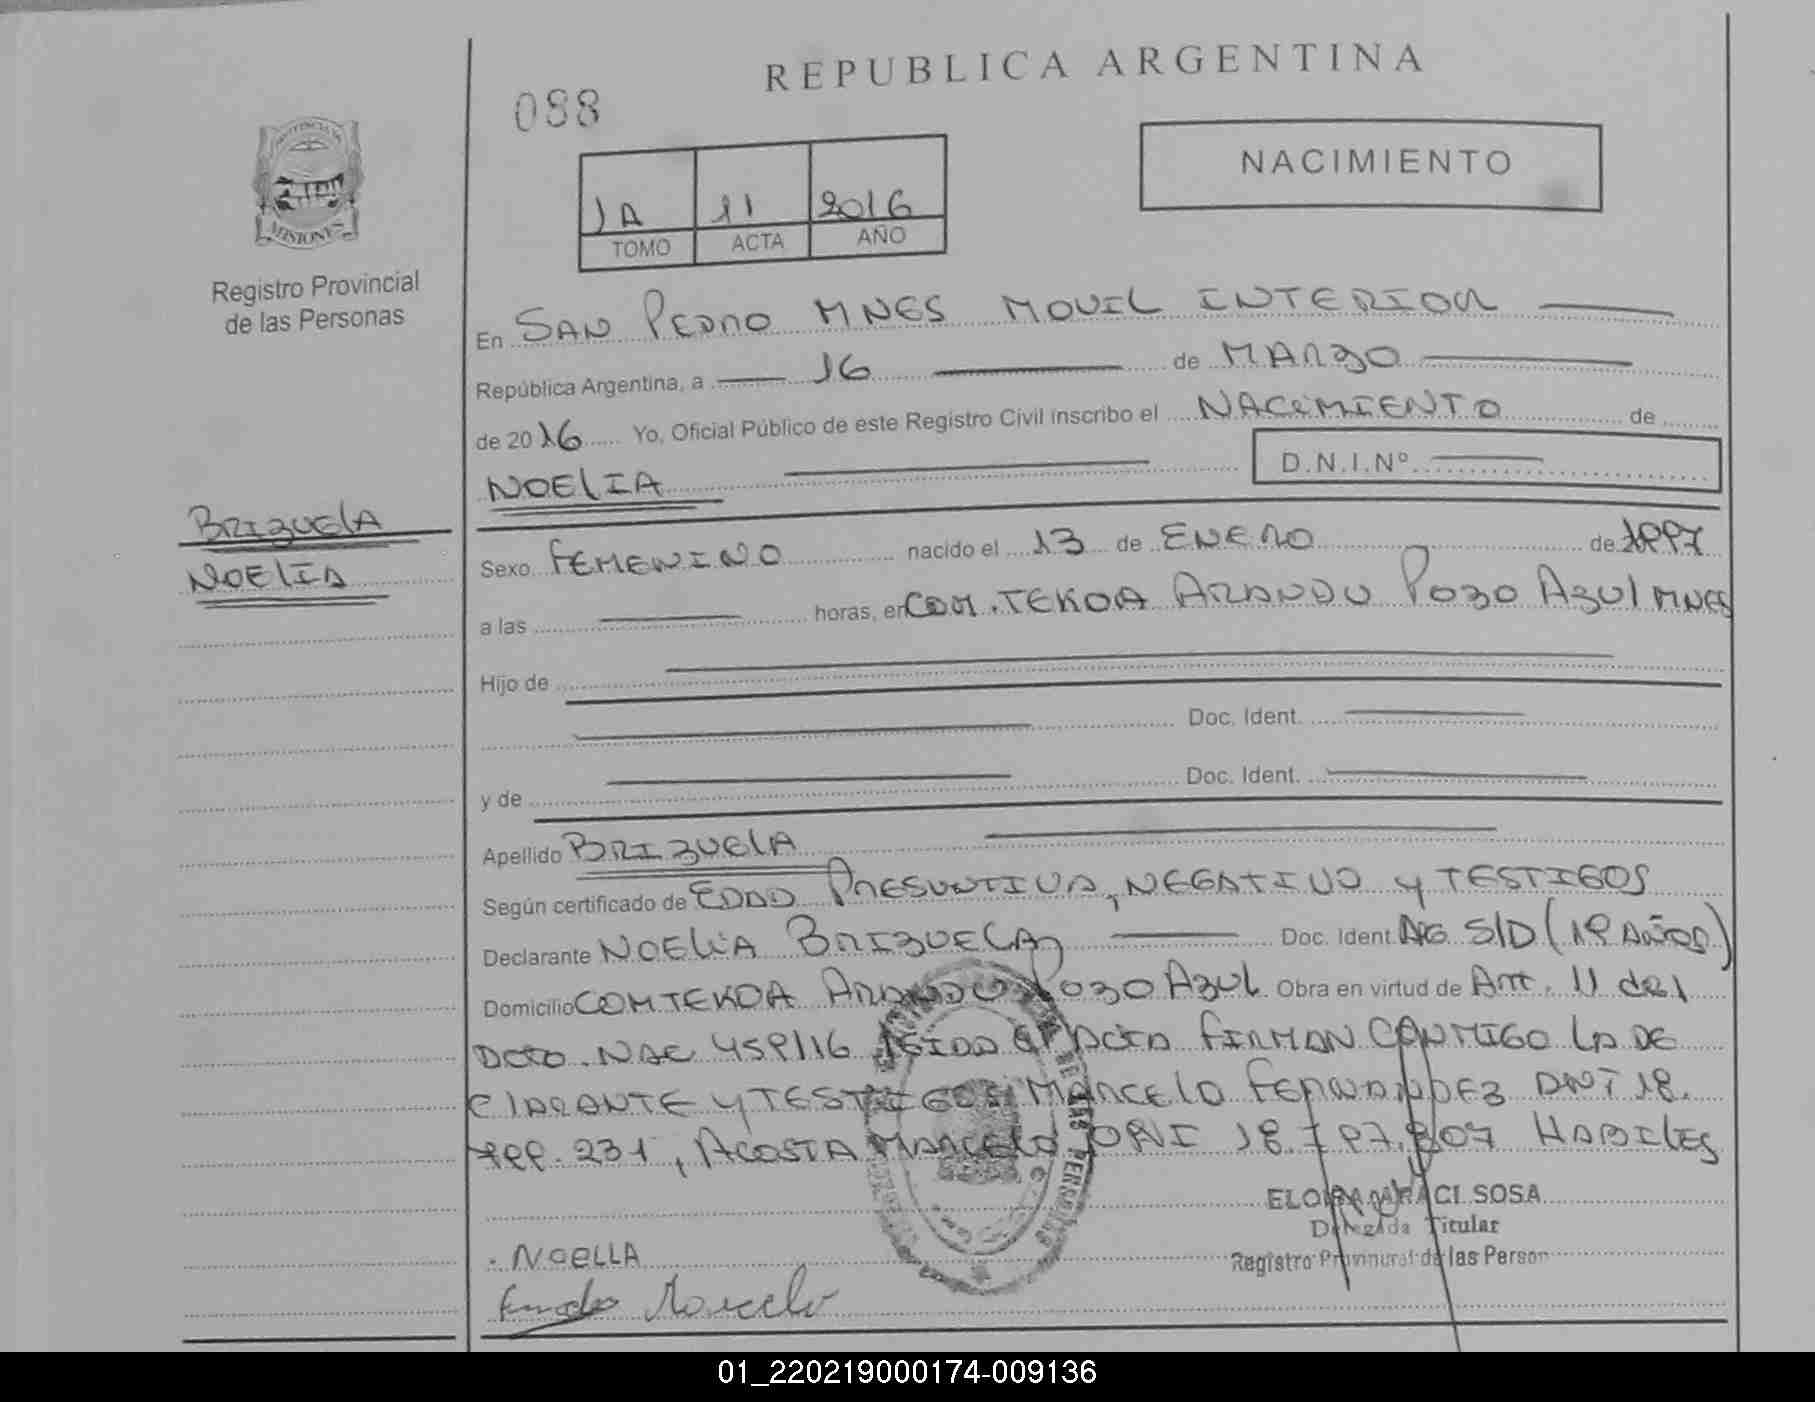 REPUBLICA ARGENTINA
088
NACIMIENTO
1A 11 2016
TOMO ACTA AÑO
PROVINCIA DE
MISIONES
Registro Provincial
de las Personas
En SAN PEDRO MNES MOVIL INTERIOR
República Argentina, a 16 de MARZO
de 2016 Yo, Oficial Público de este Registro Civil inscribo el NACIMIENTO de
NOELIA D.N.I.Nº
BRIZUELA
NOELIA
Sexo FEMENINO nacido el 13 de ENERO de 1997
a las horas, en COM. TEKOA ARANDU POZO AZUL MNES
Hijo de
Doc. Ident.
y de Doc. Ident.
Apellido BRIZUELA
Según certificado de EDAD PRESUNTIVA, NEGATIVO y TESTIGOS
Declarante NOELIA BRIZUELA Doc. Ident. ARG S/D (19 AÑOS)
Domicilio COM TEKOA ARANDU POZO AZUL Obra en virtud de Art. 11 del
DCTO. NAC 459/16 LEIDA EL ACTA FIRMAN CONMIGO LA DE
CLARANTE y TESTIGOS MARCELO FERNANDEZ DNI 18.
799.231, ACOSTA MARCELO DNI 18.797.807 HABILES
ELOISA ARACI SOSA
Delegada Titular
Registro Provincial de las Person
. NOELLA
Marcelo
01_220219000174-009136